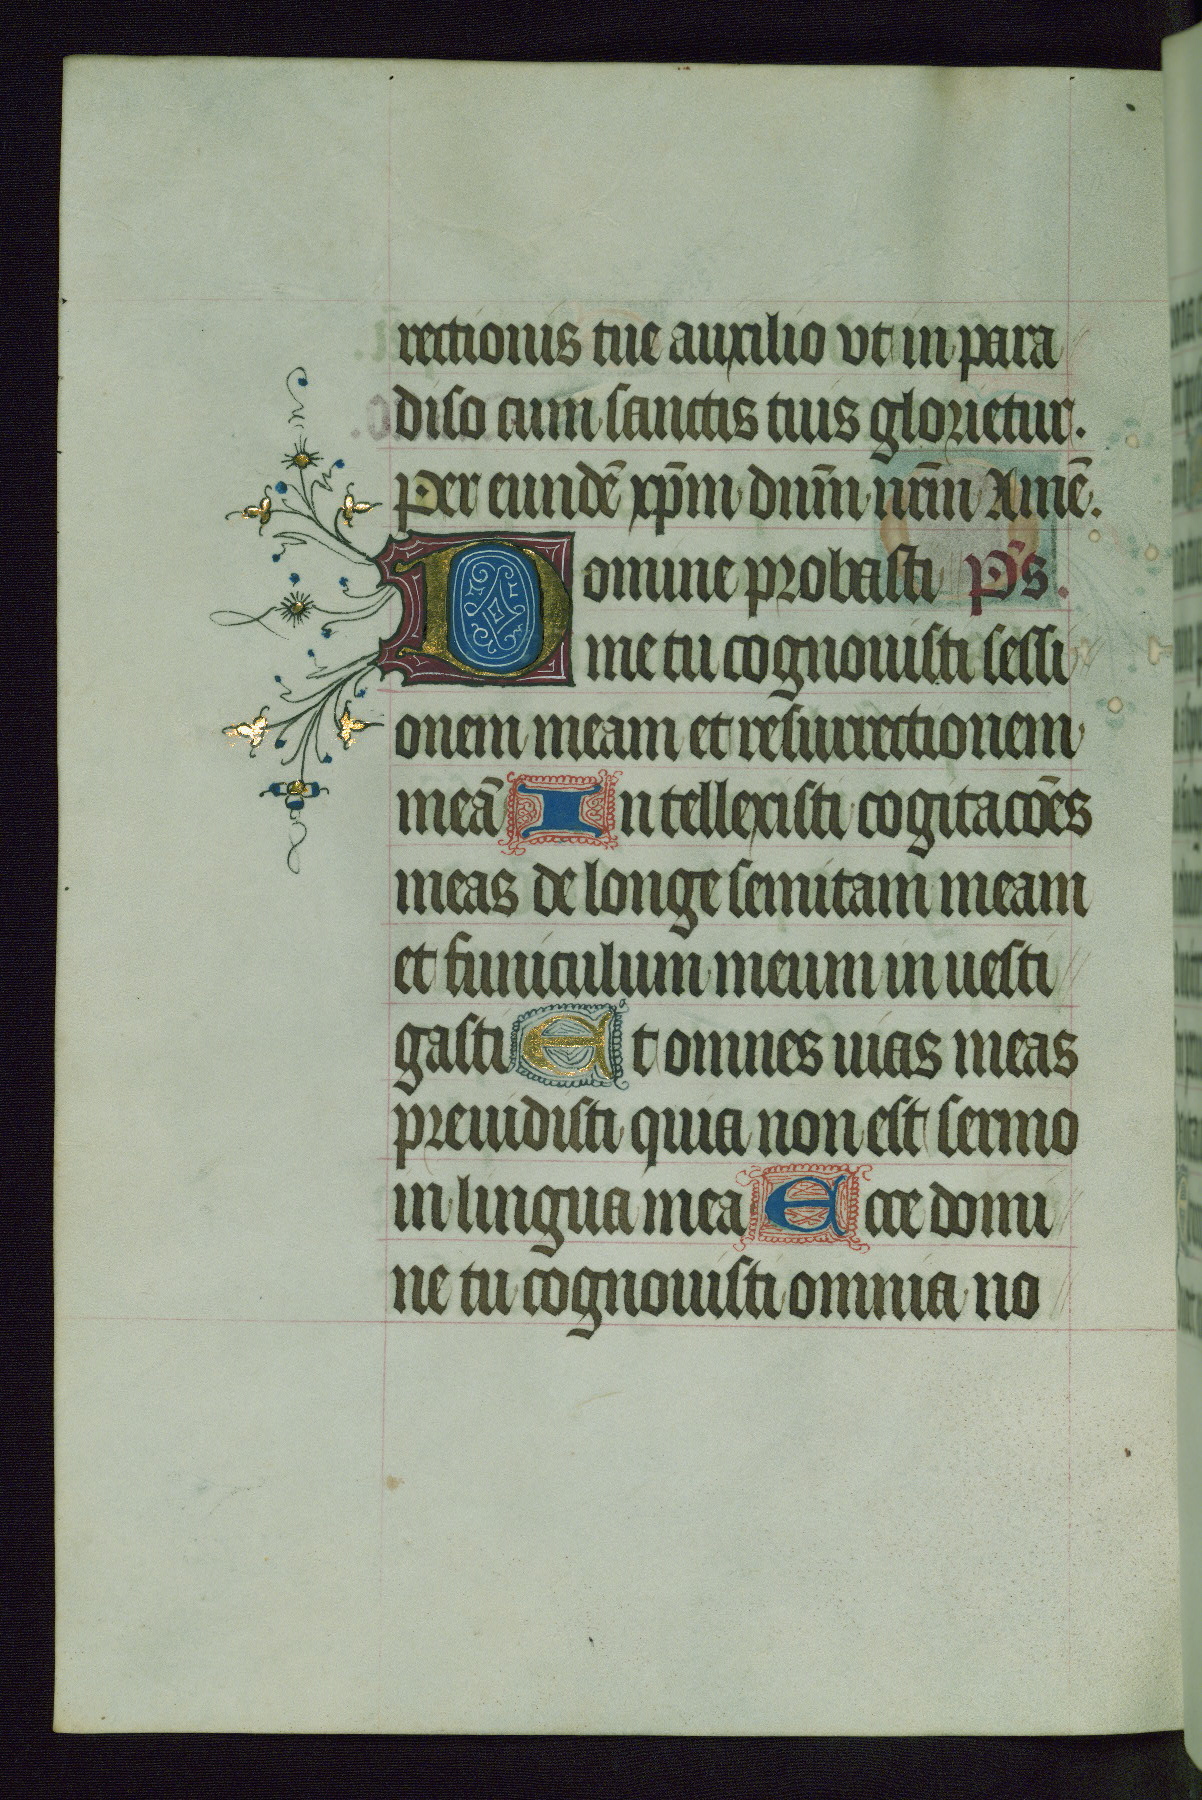 rectionis tue auxilio vt in para
diso cum sanctis tuis glorietur.
Per eundē xp̄m dnm̄ nrm̄ Amē.
Domine probasti ps̄.
me tu cognouisti sessi
onem meam et resurrectionem
meā Intellexisti cogitacōes
meas de longe semitam meam
et funiculum meum inuesti
gasti Et omnes uias meas
preuidisti quia non est sermo
in lingua mea Ecce domi
ne tu cognouisti omnia no